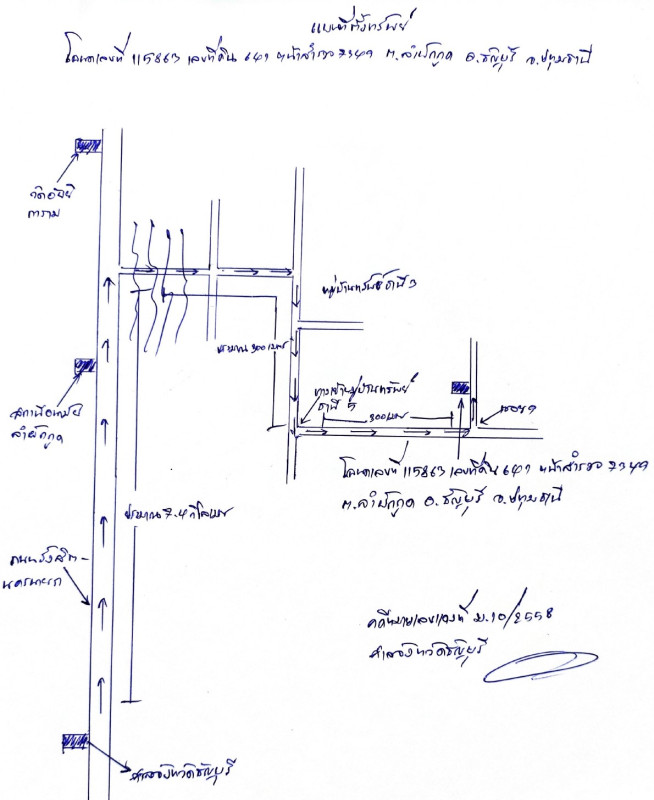 แผนที่ตั้งทรัพย์
โฉนดเลขที่ 115863 เลขที่ดิน 641 หน้าสำรวจ ต.ลำผักกูด อ.ธัญบุรี จ.ปทุมธานี
วัดอัยยิ
การาม
หมู่บ้านทรัพย์ธานี 3
ประมาณ 300 เมตร
ทางเข้าหมู่บ้านทรัพย์
ธานี
300 เมตร
สถานีอนามัย
ลำผักกูด
โฉนดเลขที่ 115863 เลขที่ดิน 641 หน้าสำรวจ
ต.ลำผักกูด อ.ธัญบุรี จ.ปทุมธานี
ประมาณ 7.4 กิโลเมตร
ถนนรังสิต-
นครนายก
คดีหมายเลขแดงที่ ม.10/2558
ศาลจังหวัดธัญบุรี
ศาลจังหวัดธัญบุรี